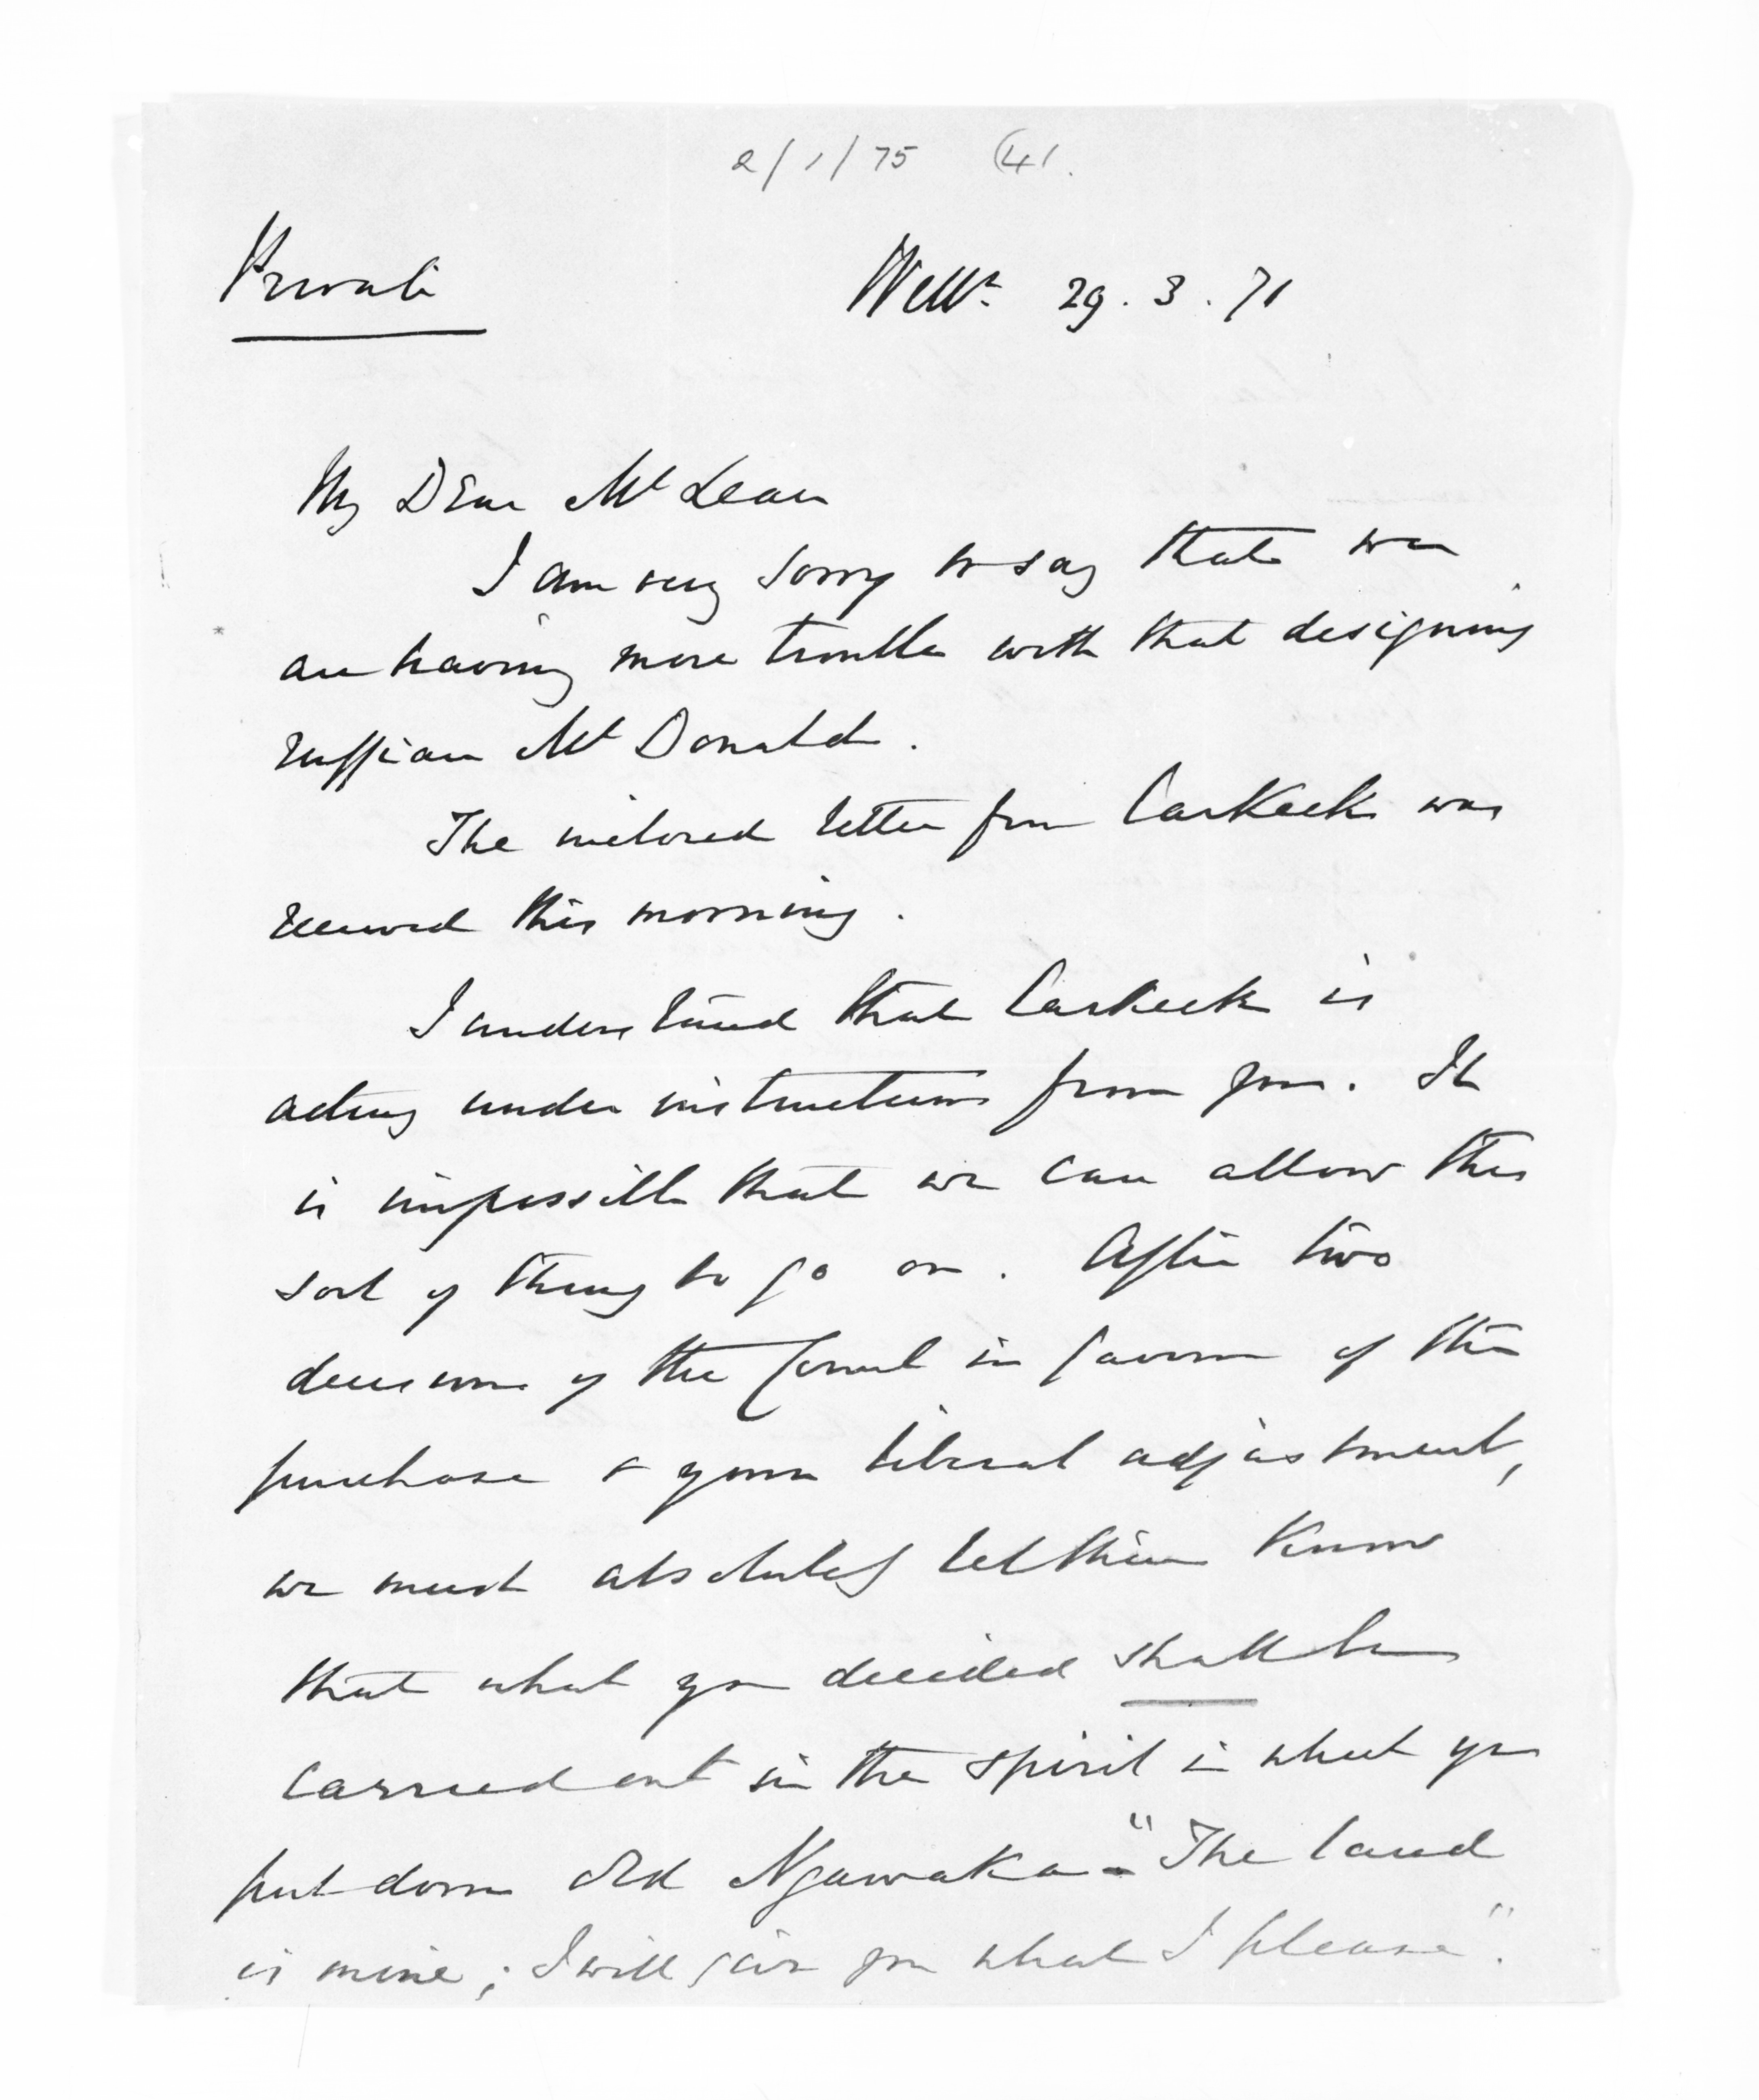 2/1/75 (41.
Private
Welln. 29. 3. 71
My Dear McLean
I am very sorry to say that we
are having more trouble with that designing
ruffian McDonald.
The inclosed letter from Carkeek was
received this morning.
I understand that Carkeek is
acting under instructions from you. It
is impossible that we can allow this
sort of thing to go on. After two
decisions of the Court in favour of the
purchase & your liberal adjustment,
we must absolutely let them know
that what you decided shall be
carried out in the spirit in which you
put down old Ngawaka - "The land
is mine; I will give you what I please".